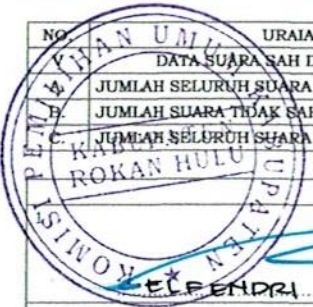 NO. URAIA
V DATA SUARA SAH D
A. JUMLAH SELURUH SUARA
B. JUMLAH SUARA TIDAK SAH
C. JUMLAH SELURUH SUARA
KOMISI PEMILIHAN UMUM KABUPATEN
KABUPATEN
ROKAN HULU
ELFENDRI